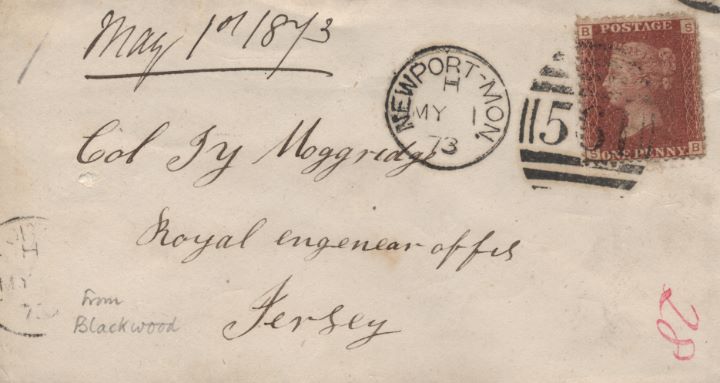 May 1st 1873
NEWPORT-MON
H
MY 1
73
B S
POSTAGE
ONE PENNY
S B
Col Jy Moggridge
Royal engenear offis
Jersey
H
MY
73
From
Blackwood
28